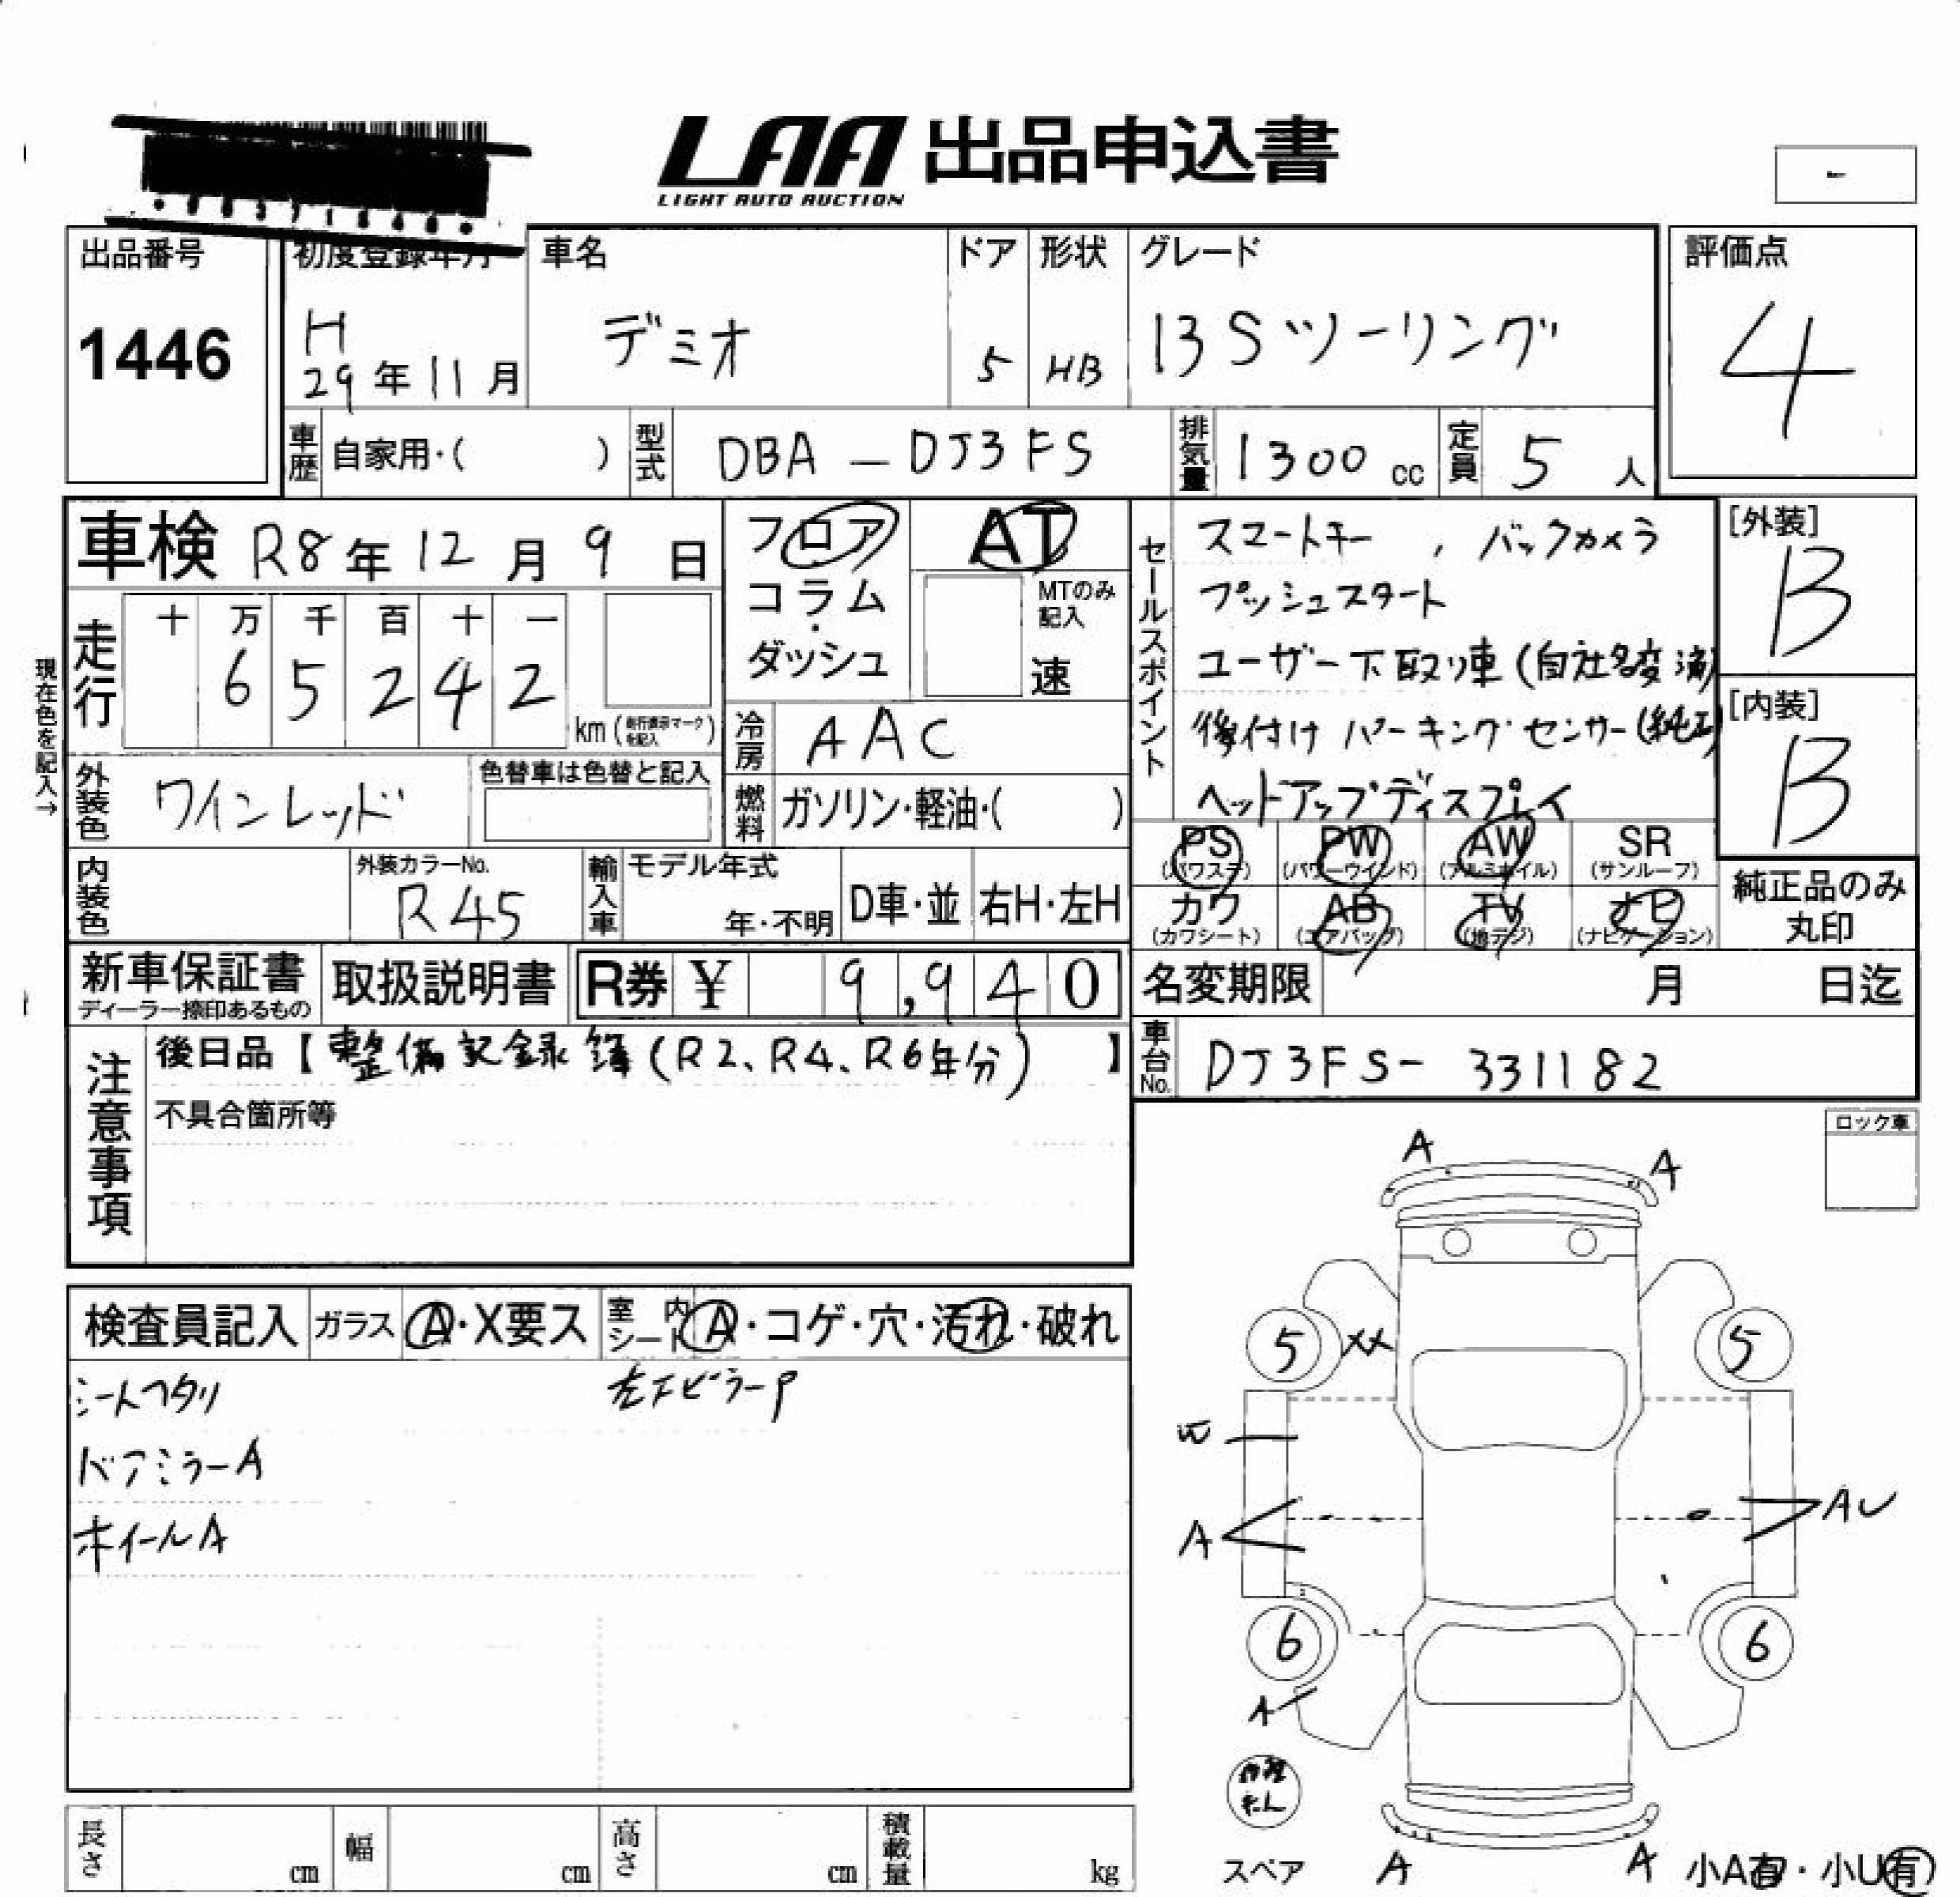 LAA 出品申込書
LIGHT AUTO AUCTION
-
出品番号
1446
初度登録年月
H
29年11月
車名
デミオ
ドア
5
形状
HB
グレード
13Sツーリング
評価点
4
車歴 自家用・( )
型式 DBA-DJ3FS
排気量 1300 cc
定員 5 人
車検 R8年12月9日
フロア
コラム
ダッシュ
AT
MTのみ記入
速
セールスポイント
スマートキー , バックカメラ
プッシュスタート
ユーザー下取り車(自社名変済)
後付けパーキングセンサー(純正)
ヘッドアップディスプレイ
[外装]
B
[内装]
B
現在色を記入→
走行
十 万 千 百 十 一
6 5 2 4 2
km (走行表示マークを記入)
冷房 AAC
外装色 ワインレッド
色替車は色替と記入
燃料 ガソリン・軽油・( )
PS (パワステ)
PW (パワーウインド)
AW (アルミホイル)
SR (サンルーフ)
カワ (カワシート)
AB (エアバッグ)
TV (地デジ)
ナビ (ナビゲーション)
純正品のみ
丸印
内装色
外装カラーNo.
R45
輸入車
モデル年式
年・不明
D車・並
右H・左H
新車保証書
ディーラー捺印あるもの
取扱説明書
R券 ¥ 9,940
名変期限 月 日迄
車台No. DJ3FS-331182
注意事項
後日品【整備記録簿(R2、R4、R6年分)】
不具合箇所等
ロック車
検査員記入
ガラス A・X要ス
室内シート A・コゲ・穴・汚れ・破れ
シートヘタリ
左下ピラーP
ドアミラーA
ホイールA
A
A
5
XX
5
A
AU
6
6
A
スペア
A
A
小A有・小U有
長さ cm
幅 cm
高さ cm
積載量 kg